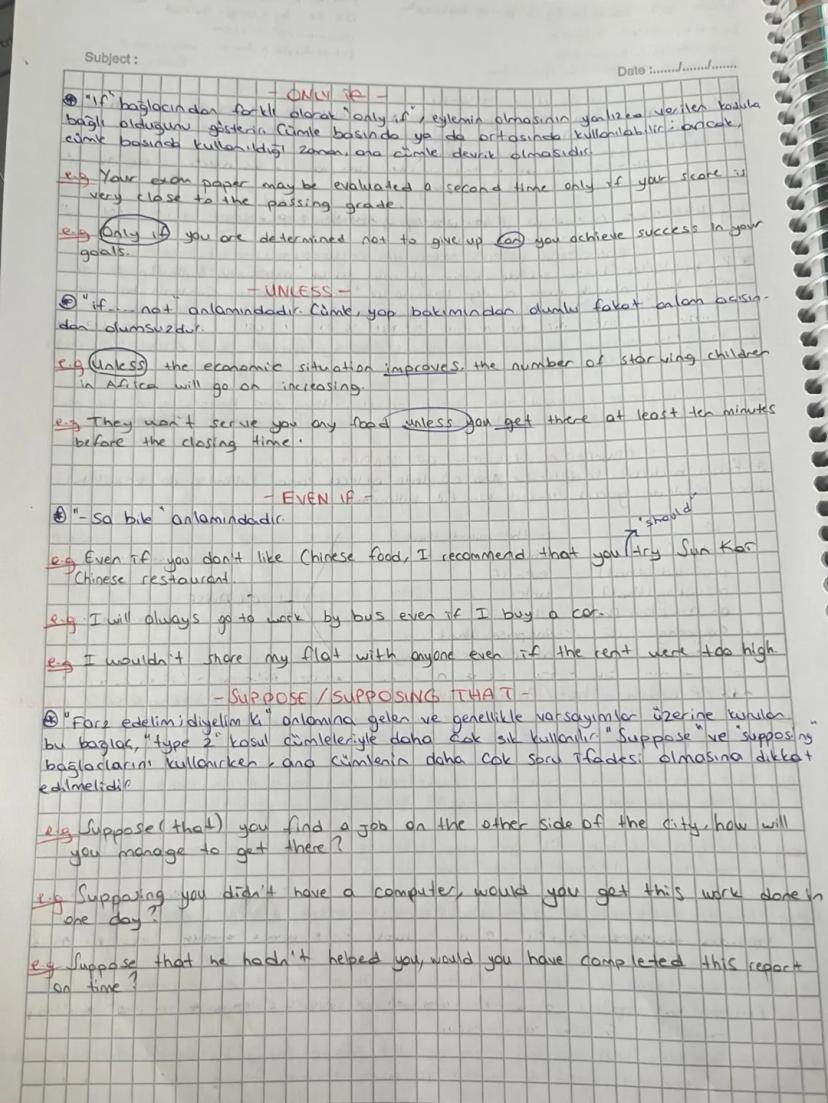 Subject :
Date :......./......./.......
- ONLY IF -
"If" bağlacından farklı olarak "only if", eylemin olmasının yalnızca verilen koşula
bağlı olduğunu gösterir. Cümle başında ya da ortasında kullanılabilir; ancak,
cümle başında kullanıldığı zaman, ana cümle devrik olmasıdır.
e.g Your exam paper may be evaluated a second time only if your score is
very close to the passing grade.
e.g Only if you are determined not to give up can you achieve success in your
goals.
- UNLESS -
"if.... not" anlamındadır. Cümle, yapı bakımından olumlu fakat anlam açısın-
dan olumsuzdur.
e.g Unless the economic situation improves, the number of starving children
in Africa will go on increasing.
e.g They won't serve you any food unless you get there at least ten minutes
before the closing time.
- EVEN IF -
"-sa bile" anlamındadır.
"should"
e.g Even if you don't like Chinese food, I recommend that you try Sun Kar
Chinese restaurant.
e.g I will always go to work by bus even if I buy a car.
e.g I wouldn't share my flat with anyone even if the rent were too high
- SUPPOSE / SUPPOSING THAT -
"Farz edelim/diyelim ki" anlamına gelen ve genellikle varsayımlar üzerine kurulan
bu bağlaç, "type 2" koşul cümleleriyle daha çok sık kullanılır. "Suppose" ve "supposing"
bağlaçlarını kullanırken, ana cümlenin daha çok soru ifadesi olmasına dikkat
edilmelidir
e.g Suppose (that) you find a job on the other side of the city, how will
you manage to get there?
e.g Supposing you didn't have a computer, would you get this work done in
one day?
e.g Suppose that he hadn't helped you, would you have completed this report
on time?